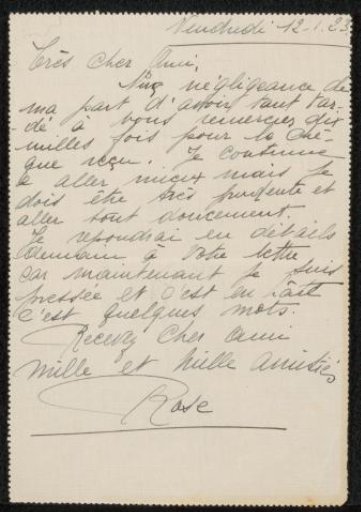 Vendredi 12-1.23
Très Cher Ami,
négligeance de
ma part d'avoir tant tar-
dé à vous remercier dix
milles fois pour le chè-
que reçu. Je continue
à aller mieux mais je
dois être très prudente et
aller tout doucement.
Je repondrai en détails
demain à votre lettre
car maintenant je suis
pressée et c'est en hâte
c'est quelques mots.
Recevez Cher ami
mille et mille amitiés
Rose